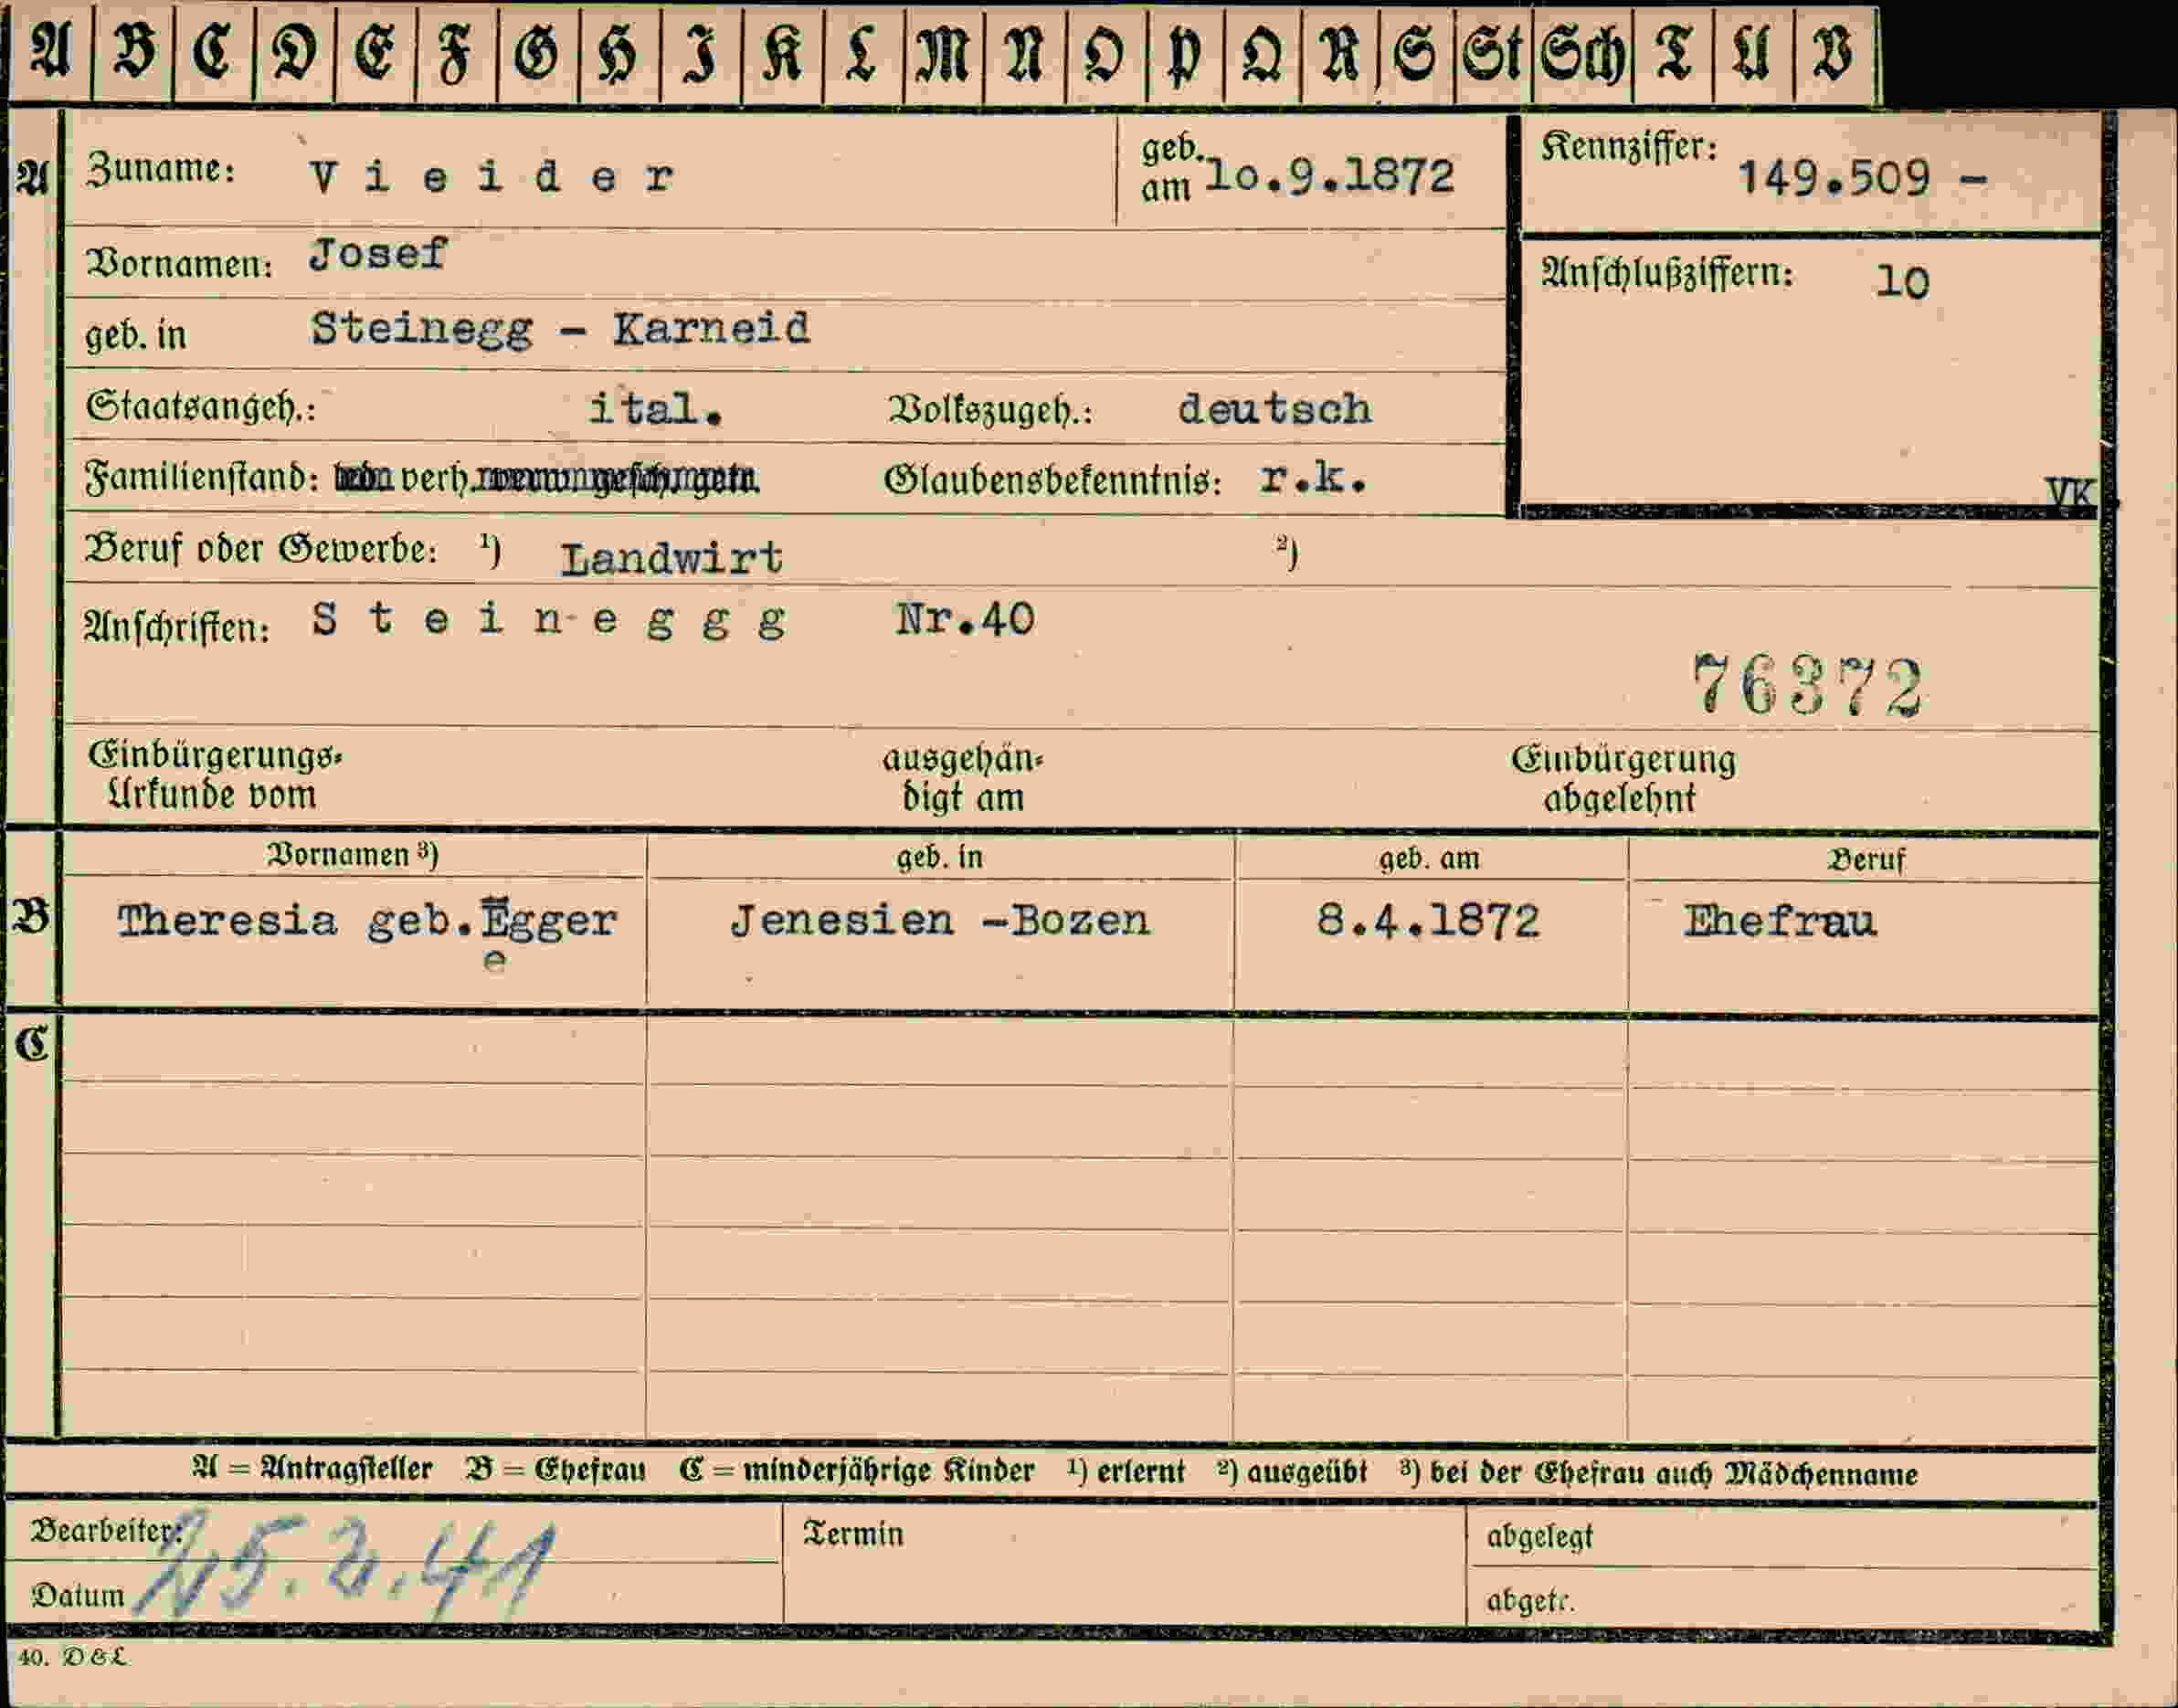 A B C D E F G H I K L M N O P Q R S St Sch T U V
A Zuname: Vieider geb. am 10.9.1872 Kennziffer: 149.509 -
Vornamen: Josef Anschlußziffern: 10
geb. in Steinegg - Karneid
Staatsangeh.: ital. Volkszugeh.: deutsch
Familienstand: verh. Glaubensbekenntnis: r.k. VK
Beruf oder Gewerbe: ¹) Landwirt ²)
Anschriften: Steineggg Nr.40
76372
Einbürgerungs- ausgehän- Einbürgerung
Urkunde vom digt am abgelehnt
Vornamen ³) geb. in geb. am Beruf
B Theresia geb.Egger Jenesien -Bozen 8.4.1872 Ehefrau
e
C
A = Antragsteller B = Ehefrau C = minderjährige Kinder ¹) erlernt ²) ausgeübt ³) bei der Ehefrau auch Mädchenname
Bearbeiter: Termin abgelegt
Datum 25.2.41 abgetr.
40. D&L